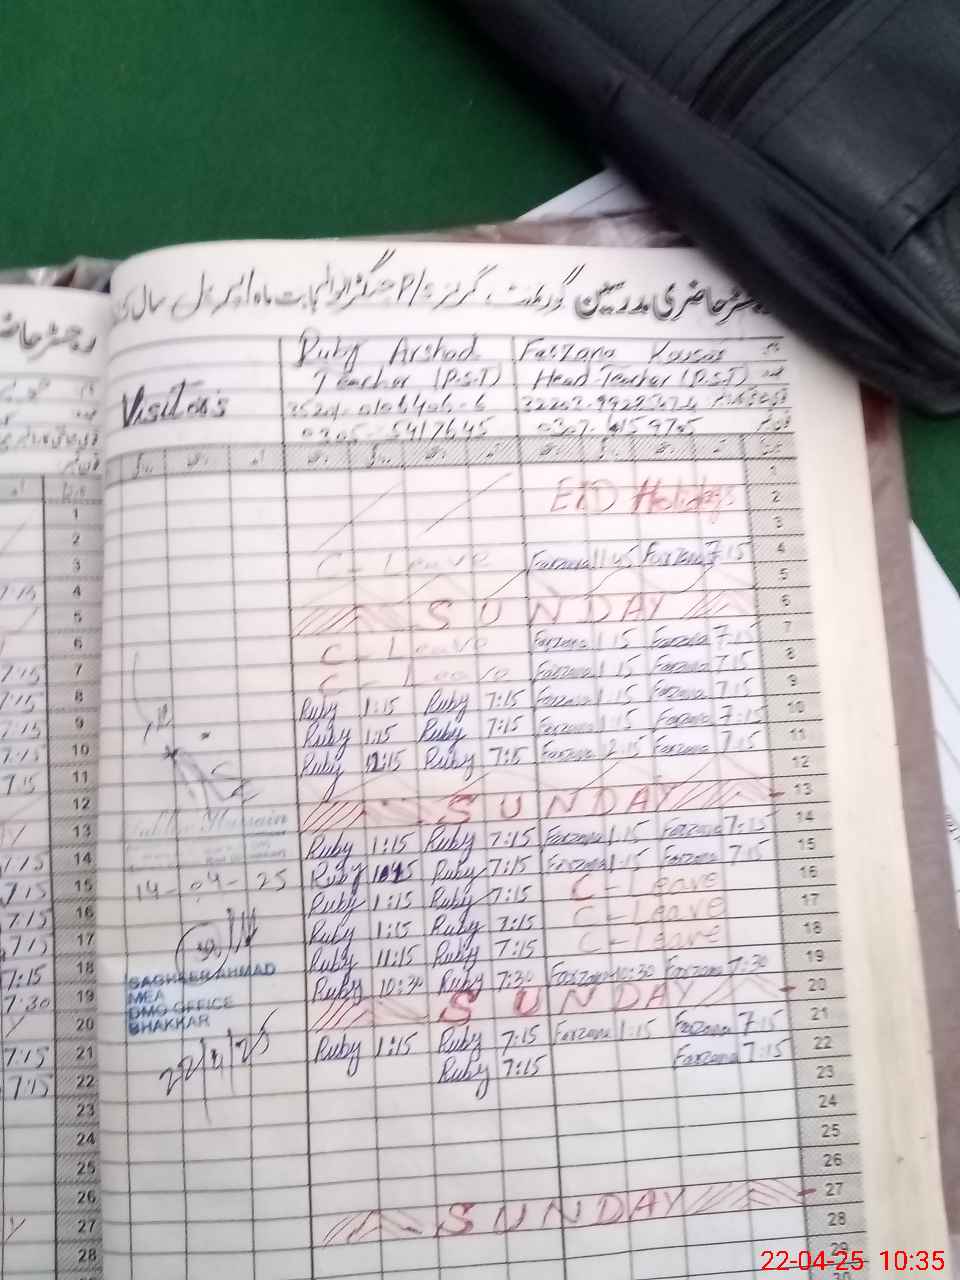 رجسٹر حاضری مدرسین گورنمنٹ گرلز P/S بابت ماہ اپریل سال
Ruby Arshad Farzana Kousar
Teacher (P.S.T) Head Teacher (P.S.T)
Visitors
0305-5417645
1
EID Holidays 2
3
C-Leave Farzana 11:45 Farzana 7:15 4
5
SUNDAY 6
C-Leave Farzana 1:15 Farzana 7:15 7
C-Leave Farzana 1:15 Farzana 7:15 8
Ruby 1:15 Ruby 7:15 Farzana 1:15 Farzana 7:15 9
Ruby 1:15 Ruby 7:15 Farzana 1:15 Farzana 7:15 10
Ruby 12:15 Ruby 7:15 Farzana 12:15 Farzana 7:15 11
12
SUNDAY 13
Ruby 1:15 Ruby 7:15 Farzana 1:15 Farzana 7:15 14
Ruby Ruby 7:15 Farzana 1:15 Farzana 7:15 15
14-04-25
Ruby 1:15 Ruby 7:15 C-Leave 16
Ruby 1:15 Ruby 7:15 C-Leave 17
Ruby 11:15 Ruby 7:15 C-Leave 18
Ruby 10:30 Ruby 7:30 Farzana 10:30 Farzana 7:30 19
SAGHEER AHMAD
MEA
DMO OFFICE
BHAKKAR
SUNDAY 20
Ruby 1:15 Ruby 7:15 Farzana 1:15 Farzana 7:15 21
Ruby 7:15 Farzana 7:15 22
22/4/25
23
24
25
26
SUNDAY 27
28
29
30
1
2
3
4
5
6
7
8
9
10
11
12
13
14
15
16
17
18
19
20
21
22
23
24
25
26
27
28
22-04-25 10:35